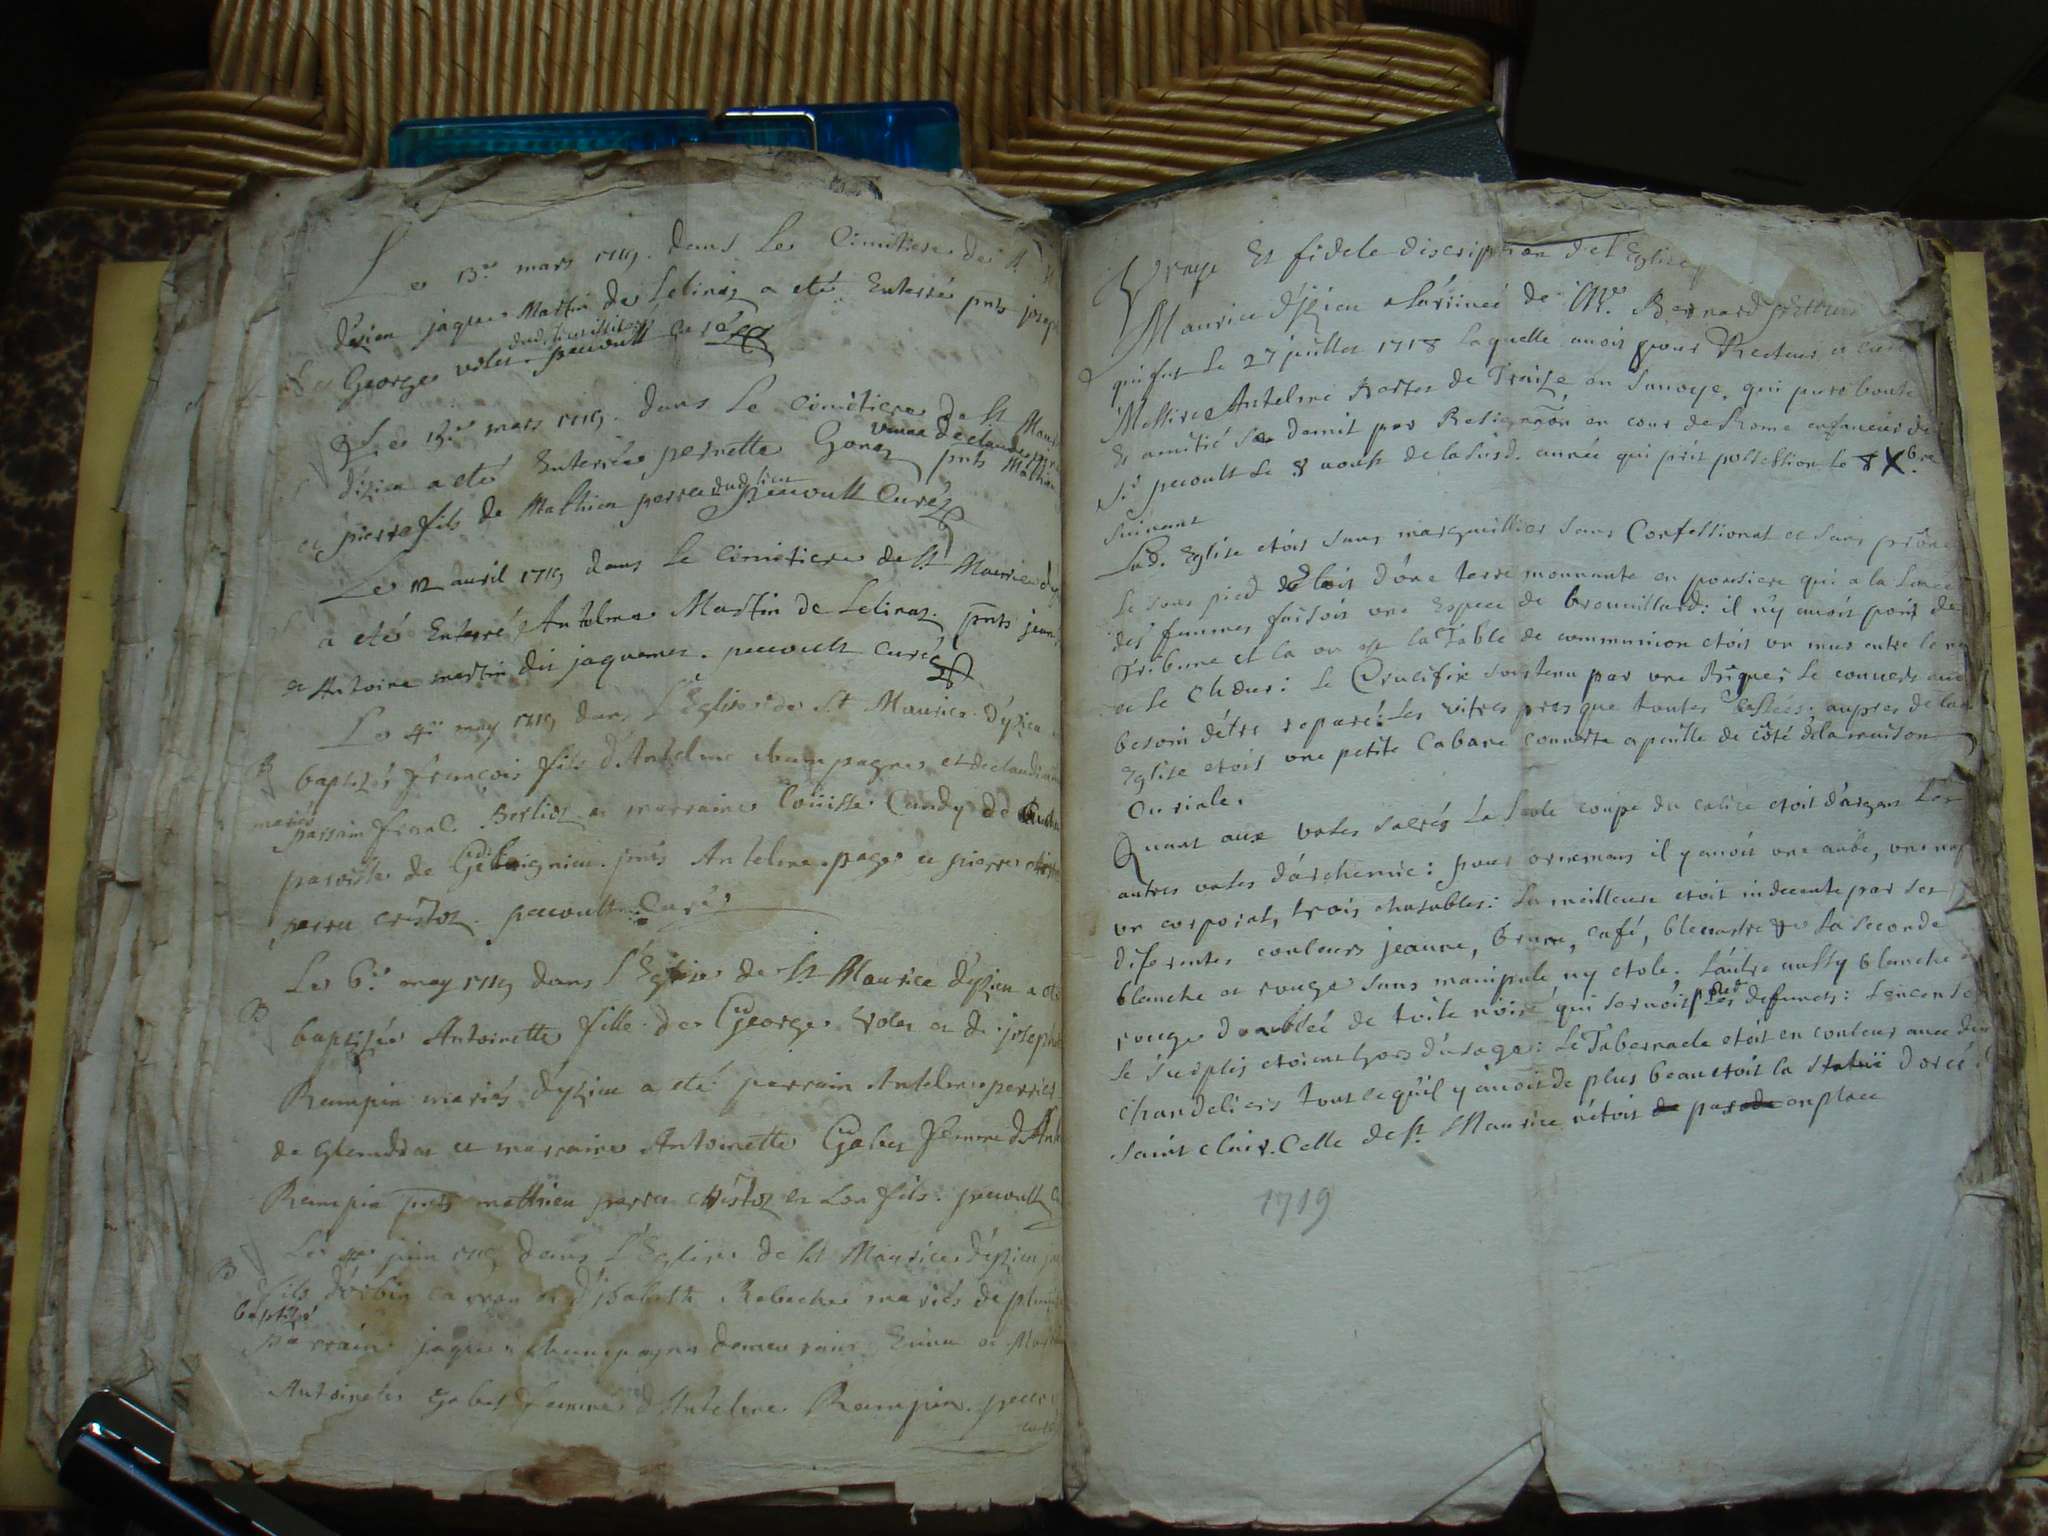 Le 13e mars 1719 dans Le Cimitiere de
d'ézieu jaque Martin de Lelinaz a eté Enterré pnts joseph
dud. lieu
et George volet pecoult curé
Le 13e mars 1719 dans Le Cimètiere de St Mauri
vivan de claude
d'izieu a eté Enterrée pernette Gonez pnts Mathieu
et pierre fils de Mathieu perret dud. lieu pecoult Curé
Le 12 avril 1719 dans Le Cimètiere de St Maurice d'y
a eté Enterré Antelme Martin de Lelinaz. pnts jean
et Antoine martin dit jaquemet. pecoult Curé
Le 4e may 1719 dans L'Eglise de St Maurice d'yzieu
B
baptizé françois fils d'Antelme champagne et declaudine
mariés
parrain Berlioz et marraine Loüisse Cundy de
paroisse de Gelignieu. pnts Antelme page et pierre
perret cristoz. pecoult Curé
Le 6e may 1719 dans L'Eglise de St Maurice d'yzieu a eté
B
baptizée Antoinette fille de George volet et de josephte
Rampin mariés d'yzieu a eté parrain Antelme perrier
de glandieu et marraine Antoinette Gobet femme d'Ant
Rampin pnts mathieu perret cristoz et son fils. pecoult C
Le juin 1719 dans L'Eglise de St Maurice d'yzieu
B
fils d'Urbin carron et d'jsabeth Rebecka mariés de
baptizé
parrain jaque champagne demeurant et Marr
Antoinete Gobet femme d'Antelme Rampin. pecoult
curé
Vraye Et fidele discription de l'Eglise
Maurice d'jzieu a L'arriveé de Mre. Bernard
qui fut Le 27 juillet 1718 laquelle avoit pour Recteur et curé
Messire Antelme Bortes de Traize en Savoye, qui pure bonté
Et amitié se demit par Resignaõn en cour de Rome enfaveur du
Sr. pecoult Le 8 aoust de la susd. année qui prit possession Le 8 Xbre
suivant
Lad. Eglise etoit sans marguillier sans Confessional et sans prône
Le sous pied étoit d'une terre mouvante en pousiere qui a la
des femmes faisoit une Espece de brouillard: il n'y avoit point de
Tribune et la ou est la Table de communion etoit un mur entre le
et le Chœur: le Crucifix soustenu par une Brique: le couvert
besoin d'être reparé: Les vitres pres que toutes cassées. aupres de la
Eglise etoit une petite Cabane couverte a paille de côté de la maison
Curiale.
Quant aux vases sacrés La seule coupe du calice etoit d'argent les
autres vases d'archemie: pour ornemans il y avoit une aube, une
un corporal, trois chasubles: La meilleure etoit indecente par ses
diferentes couleurs jeaune, brune, café, bleuastre La seconde
blanche et rouge sans manipule ny etole. L'autre aussy blanche
rouge doublée de toile noire qui servoit pr les defuncts: L'encensoir
le surplis etoient hors d'usage: Le Tabernacle etoit en couleur avec deux
chandeliers tout ce qu'il y avoit de plus beau etoit la statuë dorée
saint clair. Celle de St. Maurice n'étoit pas en place
1719